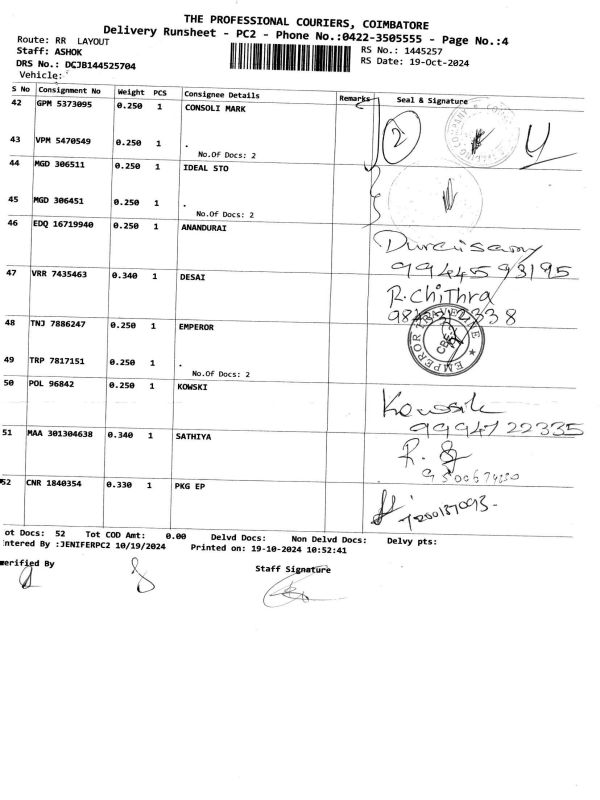 THE PROFESSIONAL COURIERS, COIMBATORE
Delivery Runsheet - PC2 - Phone No.:0422-3505555 - Page No.:4
Route: RR LAYOUT
RS No.: 1445257
Staff: ASHOK
RS Date: 19-Oct-2024
DRS No.: DCJB144525704
Vehicle:
S No Consignment No Weight PCS Consignee Details Remarks Seal & Signature
42 GPM 5373095 0.250 1 CONSOLI MARK
2
43 VPM 5470549 0.250 1 .
No.Of Docs: 2
44 MGD 306511 0.250 1 IDEAL STO
45 MGD 306451 0.250 1 .
No.Of Docs: 2
46 EDQ 16719940 0.250 1 ANANDURAI
Duraisamy
9944593195
47 VRR 7435463 0.340 1 DESAI
R.Chithra
48 TNJ 7886247 0.250 1 EMPEROR
EMPEROR TRAVEL LINE
49 TRP 7817151 0.250 1 .
No.Of Docs: 2
50 POL 96842 0.250 1 KOWSKI
Kowsik
9994722335
51 MAA 301304638 0.340 1 SATHIYA
R.
52 CNR 1840354 0.330 1 PKG EP
7200137093-
ot Docs: 52 Tot COD Amt: 0.00 Delvd Docs: Non Delvd Docs: Delvy pts:
ntered By :JENIFERPC2 10/19/2024 Printed on: 19-10-2024 10:52:41
erified By
Staff Signature